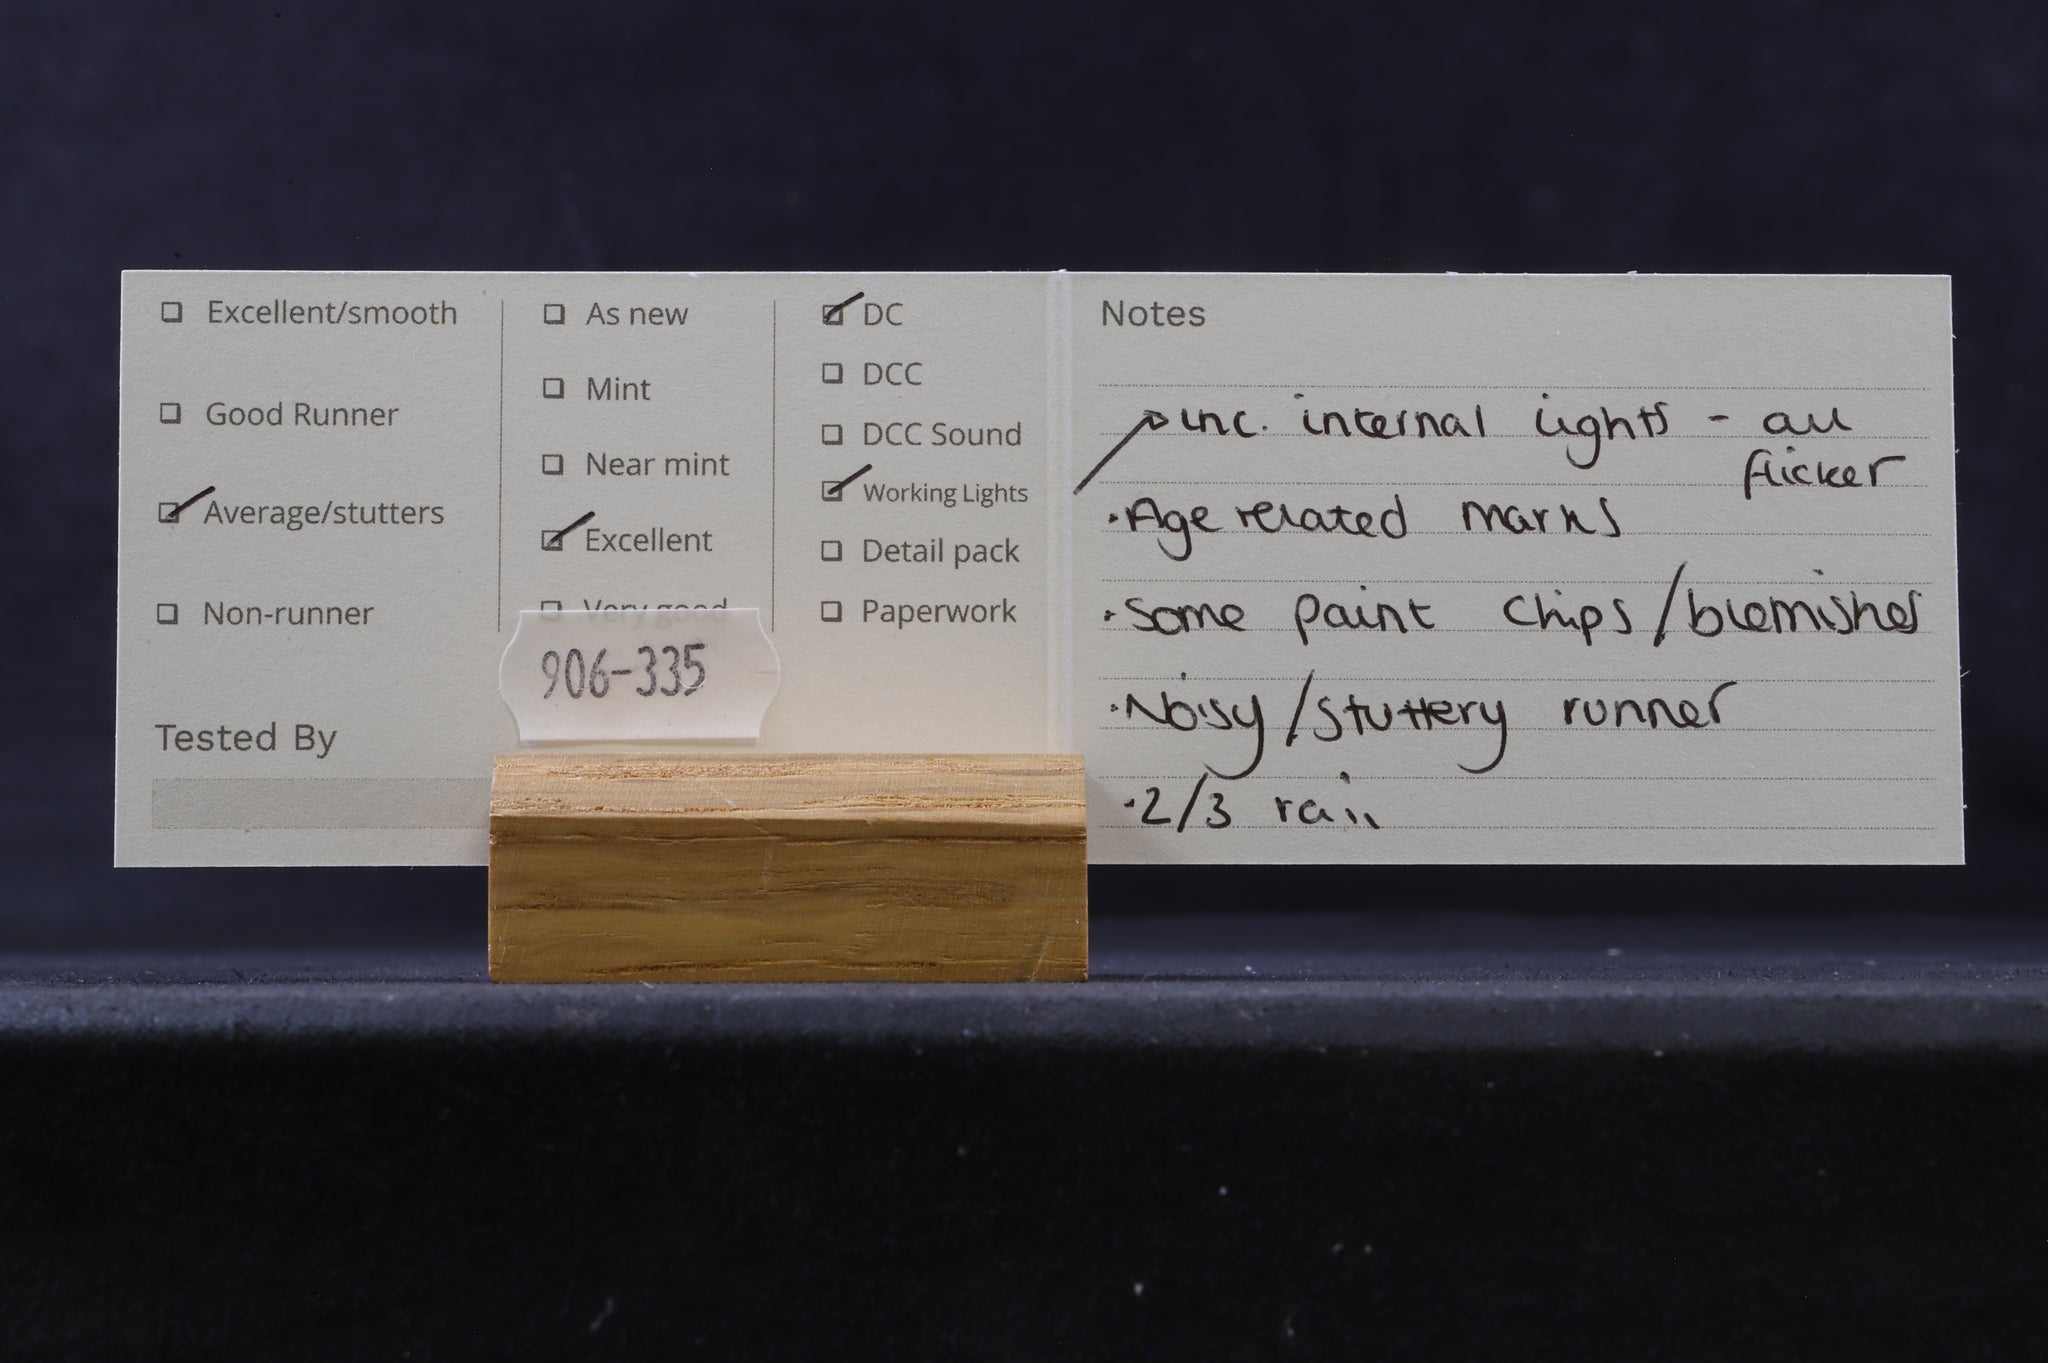 Excellent/smooth
Good Runner
Average/stutters
Non-runner
Tested By
As new
Mint
Near mint
Excellent
Very good
906-335
DC
DCC
DCC Sound
Working Lights
Detail pack
Paperwork
Notes
inc. internal lights - all
flicker
·Age related marks
·Some paint chips/blemishes
·Noisy/stuttery runner
·2/3 rail